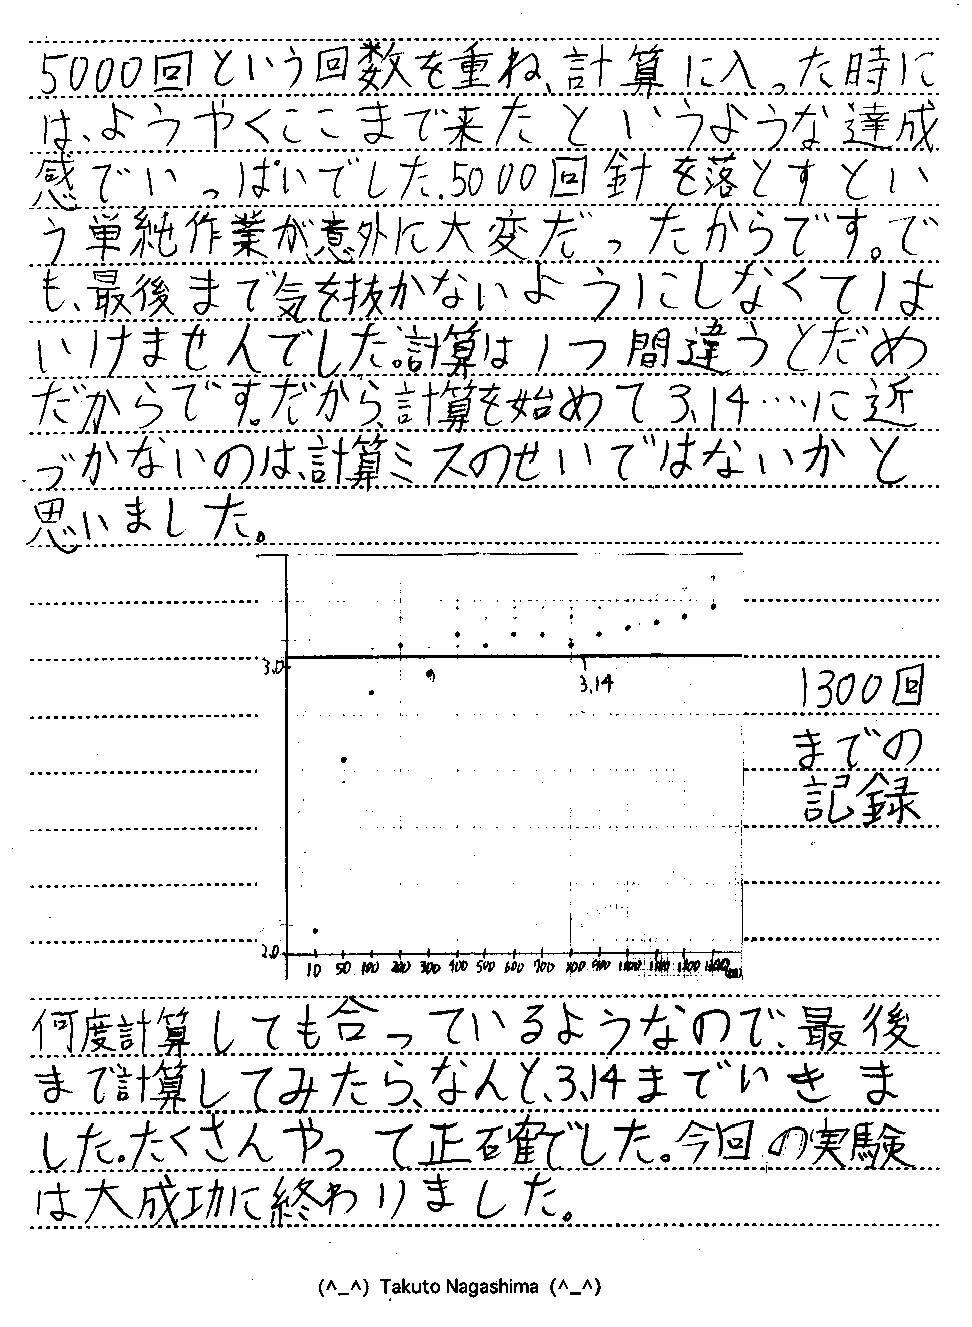 5000回という回数を重ね、計算に入った時に
は、ようやくここまで来たというような達成
感でいっぱいでした。5000回針を落とすとい
う単純作業が意外に大変だったからです。で
も、最後まで気を抜かないようにしなくては
いけませんでした。計算は1つ間違うとだめ
だからです。だから、計算を始めて3.14…に近
づかないのは、計算ミスのせいではないかと
思いました。
3.0
3.14
1300回
までの
記録
2.0
10 50 100 200 300 400 500 600 700 800 900 1000 1100 1200 1300
何度計算しても合っているようなので、最後
まで計算してみたら、なんと、3.14までいきま
した。たくさんやって正確でした。今回の実験
は大成功に終わりました。
(^_^) Takuto Nagashima (^_^)